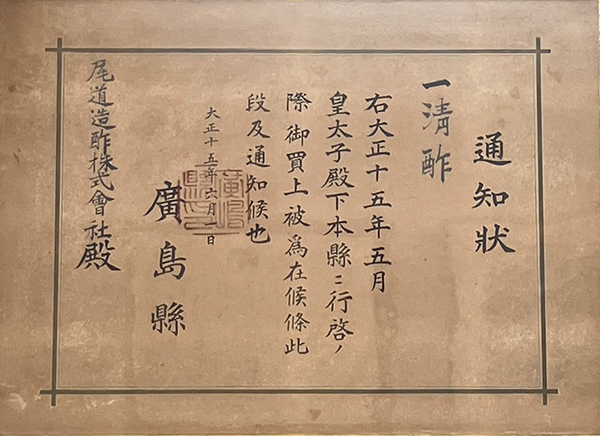 通知狀
一清酢
右大正十五年五月
皇太子殿下本縣ニ行啓ノ
際御買上被爲在候條此
段及通知候也
大正十五年六月 日
廣島縣
尾道造酢株式會社殿